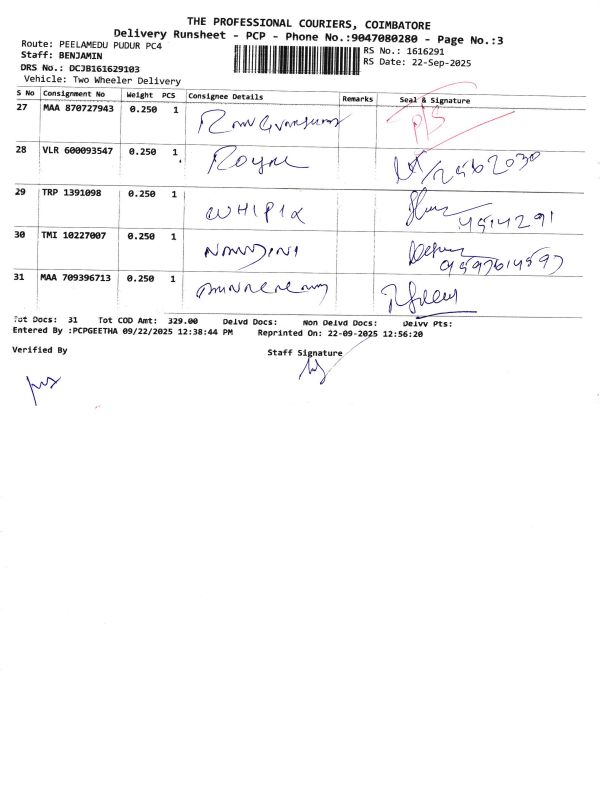 THE PROFESSIONAL COURIERS, COIMBATORE
Delivery Runsheet - PCP - Phone No.:9047080280 - Page No.:3
Route: PEELAMEDU PUDUR PC4
Staff: BENJAMIN
DRS No.: DCJB161629103
Vehicle: Two Wheeler Delivery
RS No.: 1616291
RS Date: 22-Sep-2025
S No Consignment No Weight PCS Consignee Details Remarks Seal & Signature
27 MAA 870727943 0.250 1 P/S
28 VLR 600093547 0.250 1 Royal
29 TRP 1391098 0.250 1 4514291
30 TMI 10227007 0.250 1 NANDINI
31 MAA 709396713 0.250 1
Tot Docs: 31 Tot COD Amt: 329.00 Delvd Docs: Non Delvd Docs: Delvv Pts:
Entered By :PCPGEETHA 09/22/2025 12:38:44 PM Reprinted On: 22-09-2025 12:56:20
Verified By
Staff Signature